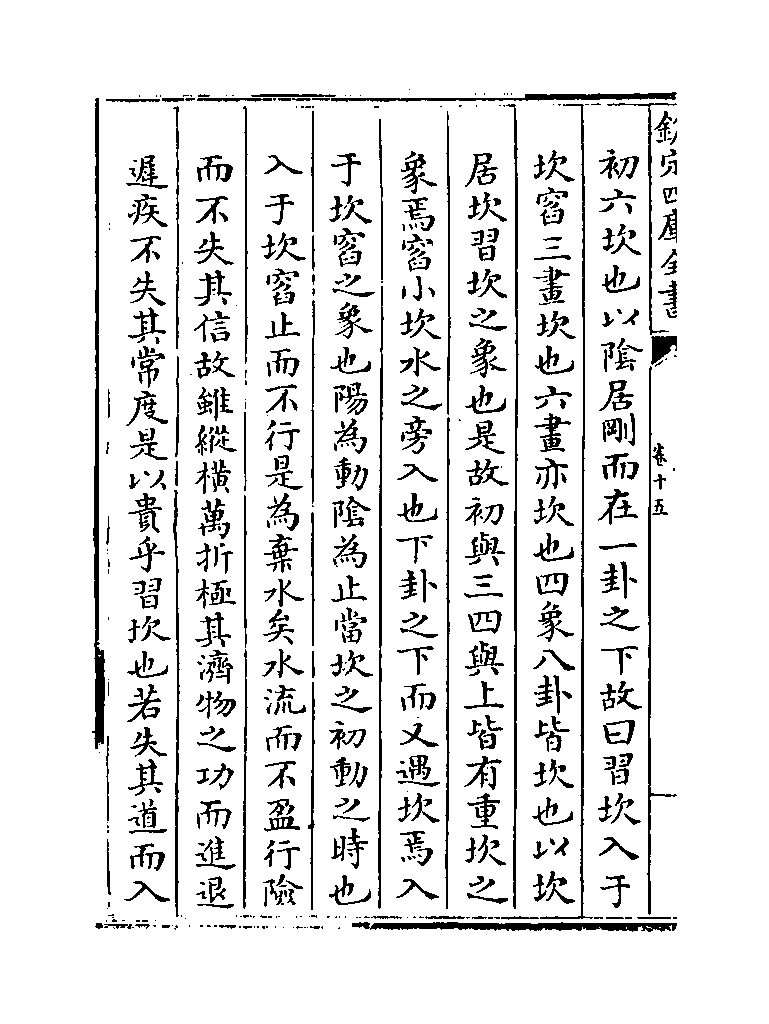 欽定四庫全書
卷十五
初六坎也以陰居剛而在一卦之下故曰習坎入于
坎窞三畫坎也六畫亦坎也四象八卦皆坎也以坎
居坎習坎之象也是故初與三四與上皆有重坎之
象焉窞小坎水之旁入也下卦之下而又遇坎焉入
于坎窞之象也陽為動陰為止當坎之初動之時也
入于坎窞止而不行是為棄水矣水流而不盈行險
而不失其信故雖縱橫萬折極其濟物之功而進退
遲疾不失其常度是以貴乎習坎也若失其道而入